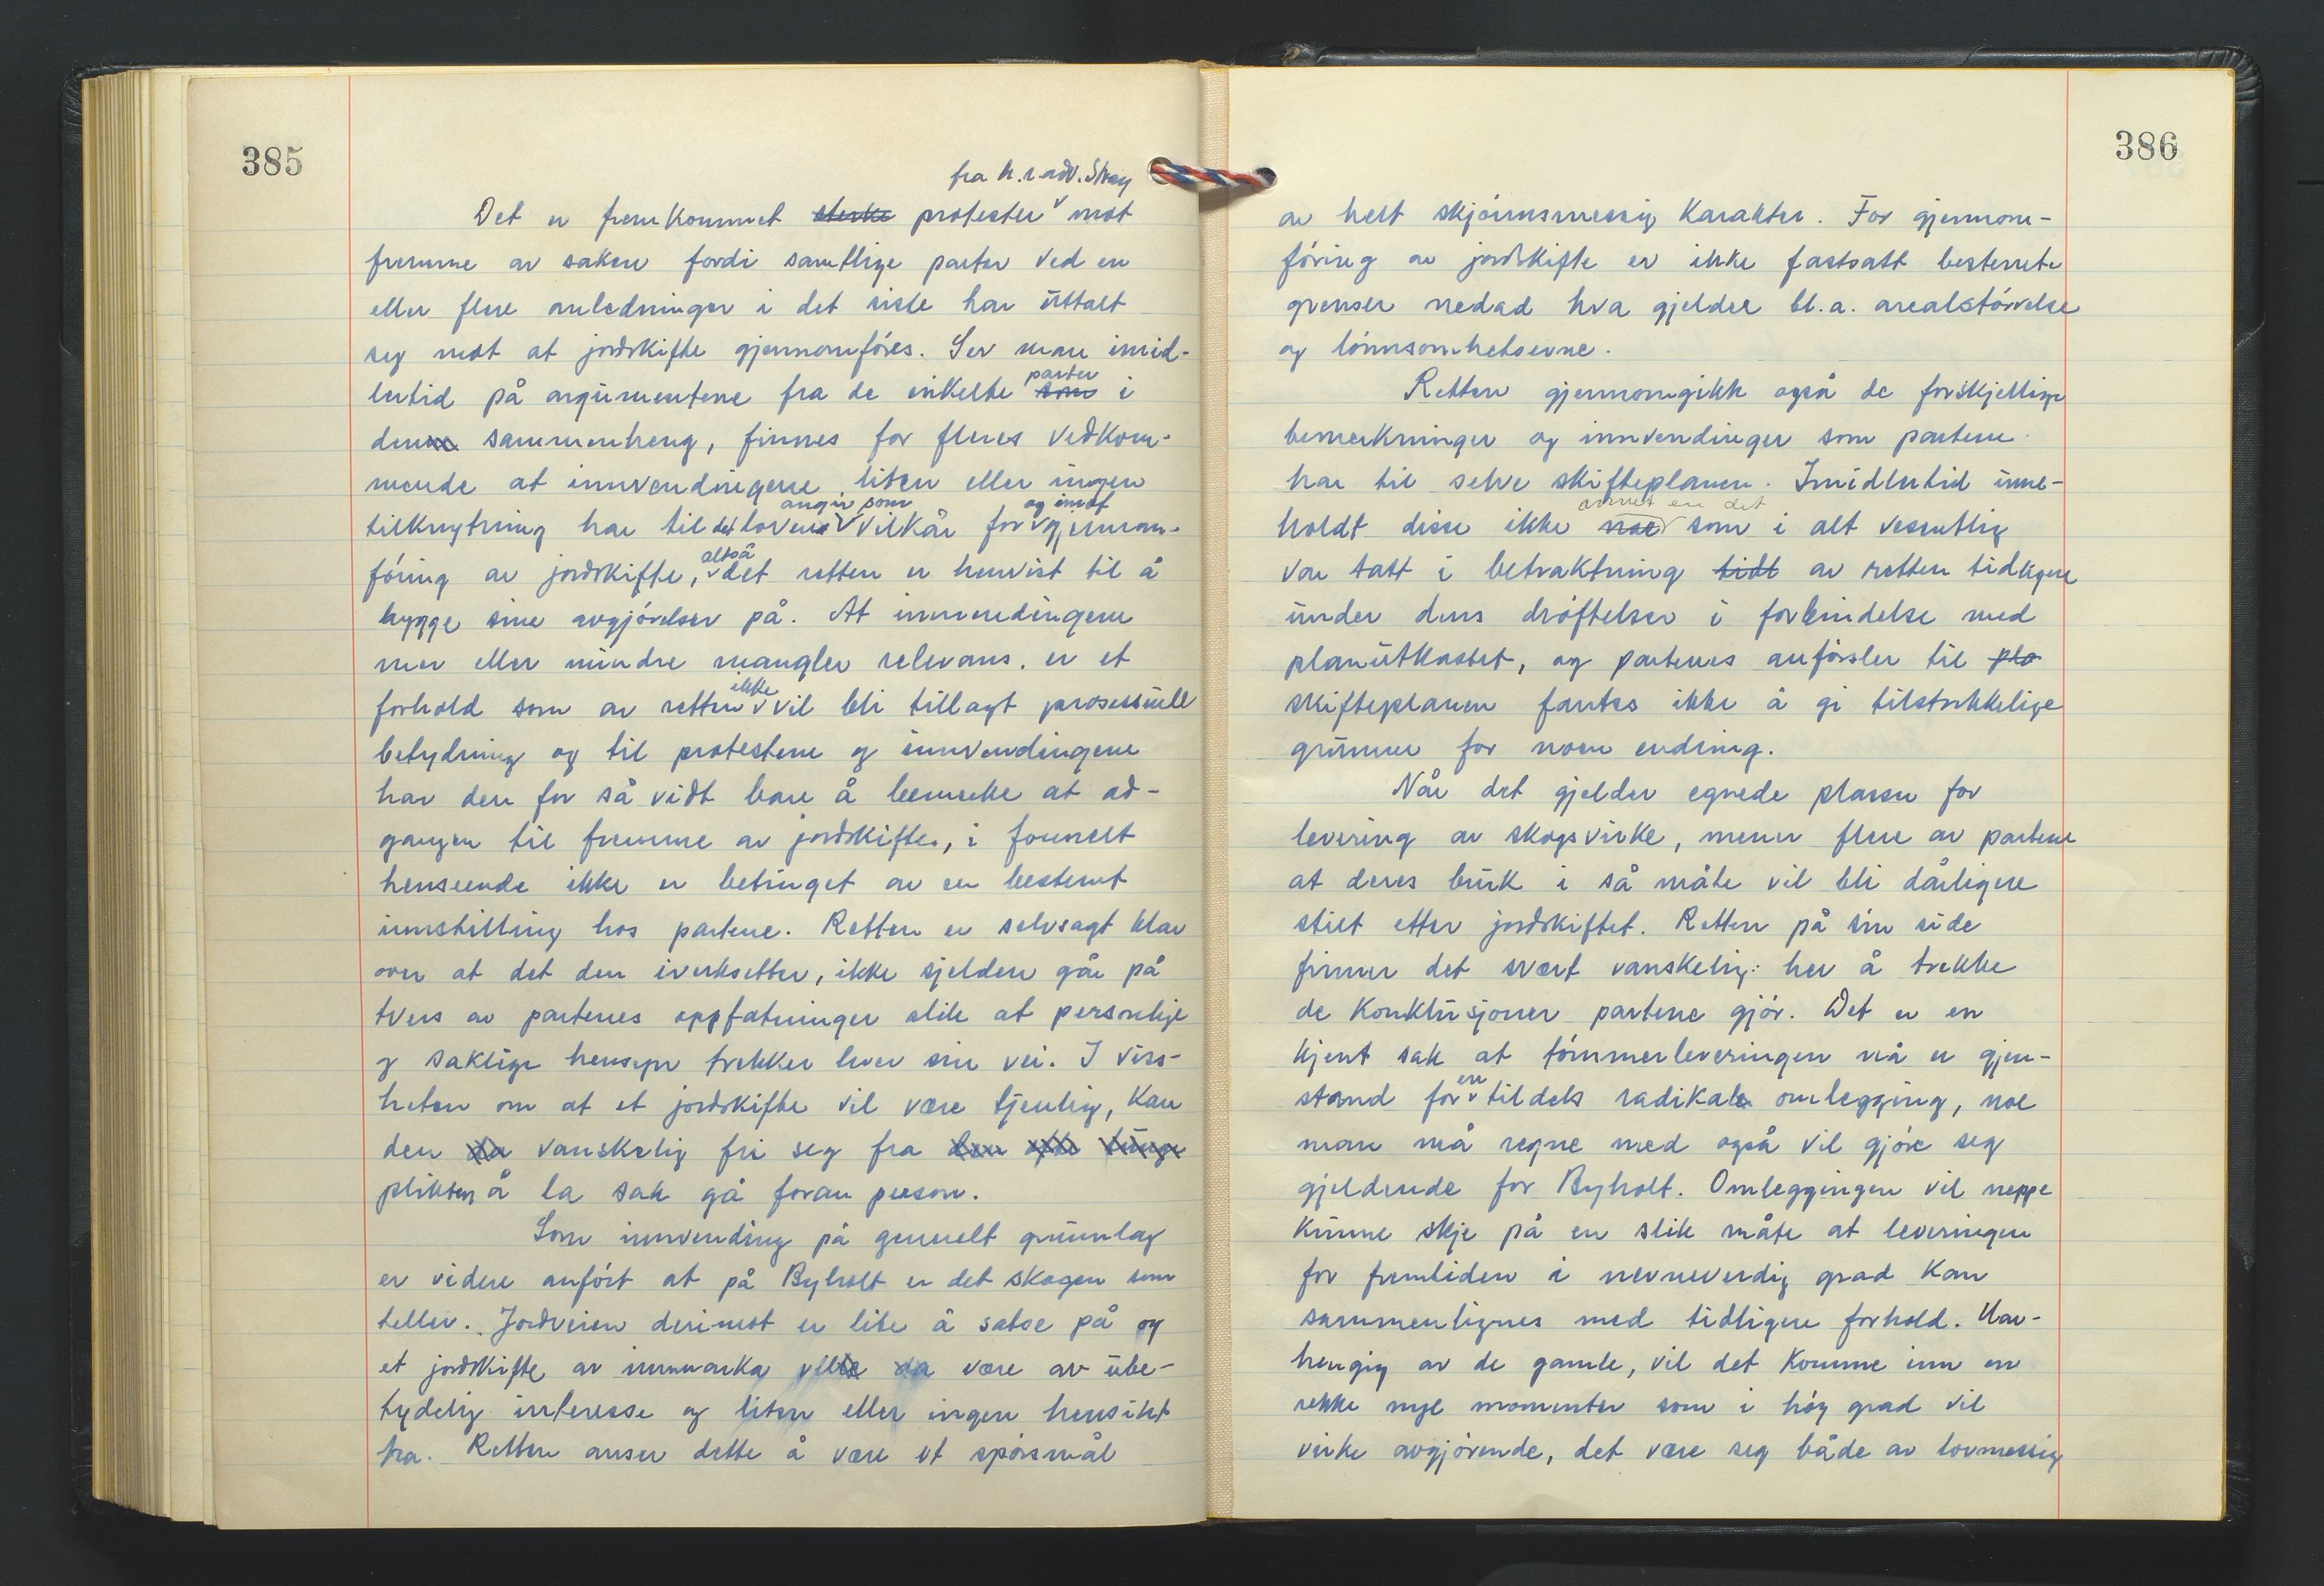 385
fra h.r.adv. Stray
Det er fremkommet sterke protester mot
fremme av saken fordi samtlige parter ved en
eller flere anledninger i det siste har uttalt
seg mot at jordskifte gjennomføres. Ser man imid-
lertid på argumentene fra de enkelte som parter i
denne sammenheng, finnes for fleres vedkom-
mende at innvendingene liten eller ingen
tilknytning har til det lovens angir som vilkår for og imot gjennom-
føring av jordskifte, altså det retten er henvist til å
bygge sine avgjørelser på. At innvendingene
mer eller mindre mangler relevans, er et
forhold som av retten ikke vil bli tillagt prosessuell
betydning og til protestene og innvendingene
har den for så vidt bare å bemerke at ad-
gangen til fremme av jordskifte, i formelt
henseende ikke er betinget av en bestemt
innstilling hos partene. Retten er selvsagt klar
over at det den iverksetter, ikke sjelden går på
tvers av partenes oppfatninger slik at personlige
og saklige hensyn trekker hver sin vei. I viss-
heten om at et jordskifte vil være tjenlig, kan
den da vanskelig fri seg fra den ofte tunge
plikten å la sak gå foran person.
Som innvending på generelt grunnlag
er videre anført at på Byholt er det skogen som
teller. Jordveien derimot er lite å satse på og
et jordskifte av innmarka ville da være av ube-
tydelig interesse og liten eller ingen hensikt
ha. Retten anser dette å være et spørsmål
386
av helt skjønnsmessig karakter. For gjennom-
føring av jordskifte er ikke fastsatt bestemte
grenser nedad hva gjelder bl.a. arealstørrelse
og lønnsomhetsevne.
Retten gjennomgikk også de forskjellige
bemerkninger og innvendinger som partene
har til selve skifteplanen. Imidlertid inne-
holdt disse ikke noe annet en det som i alt vesentlig
var tatt i betraktning tidl av retten tidligere
under dens drøftelser i forbindelse med
planutkastet, og partenes anførsler til pla
skifteplanen fantes ikke å gi tilstrekkelige
grunner for noen endring.
Når det gjelder egnede plasser for
levering av skogsvirke, mener flere av partene
at deres bruk i så måte vil bli dårligere
stilt etter jordskiftet. Retten på sin side
finner det svært vanskelig her å trekke
de konklusjoner partene gjør. Det er en
kjent sak at tømmerleveringen nå er gjen-
stand for en tildels radikale omlegging, noe
man må regne med også vil gjøre seg
gjeldende for Byholt. Omleggingen vil neppe
kunne skje på en slik måte at leveringen
for fremtiden i nevneverdig grad kan
sammenlignes med tidligere forhold. Uav-
hengig av de gamle, vil det komme inn en
rekke nye momenter som i høy grad vil
virke avgjørende, det være seg både av lovmessig